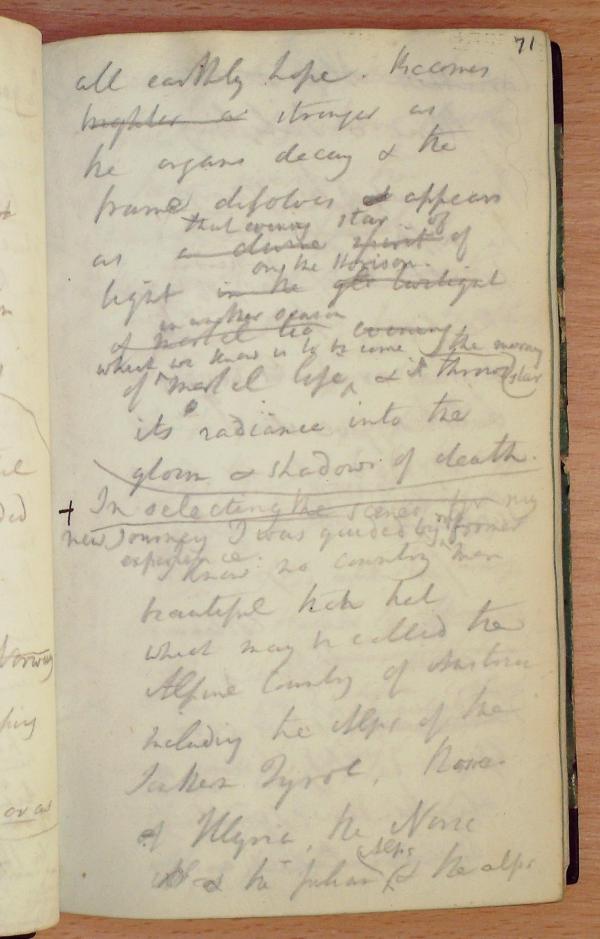 71
all earthly hope. Becomes
brighter & stronger as
the organs decay & the
frame dissolves & appears
that evening star of
as a divine spirit of
on the Horison.
light in the twilight
in another season
of mortal evening
what we know is to be come the morning
of mortal life, & it throws star
its radiance into the
gloom & shadows of death.
+ In selecting the scenes for my
new journey I was guided by former
experience.
I know no country more
beautiful than that
which may be called the
Alpine Country of Austria
including the Alps of the
Southern Tyrol, those
of Illyria, the Noric
Alps
& the Julian & the alps
Norway
or as